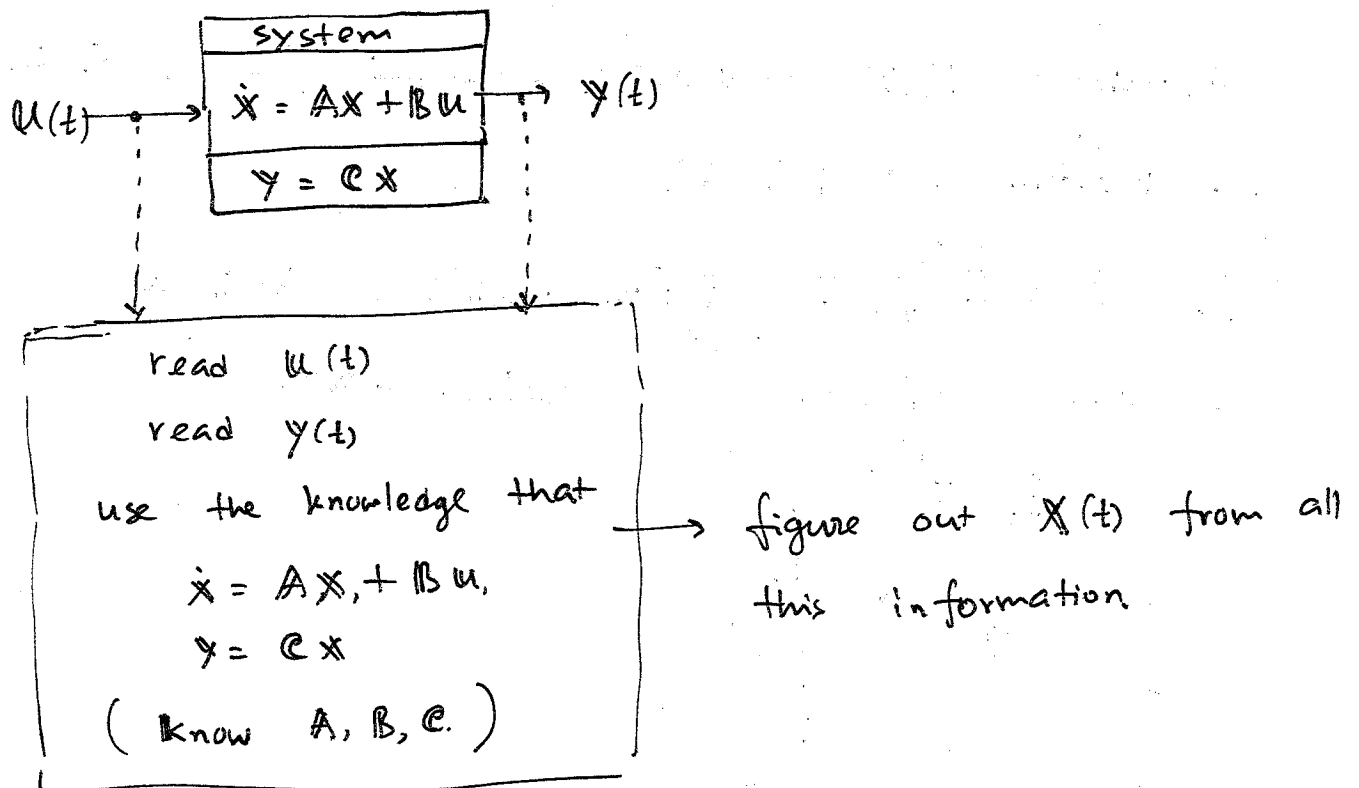 system
u(t)
ẋ = Ax + Bu
y(t)
y = Cx
read u(t)
read y(t)
use the knowledge that
ẋ = Ax, + Bu,
y = Cx
( know A, B, C. )
figure out x(t) from all
this information